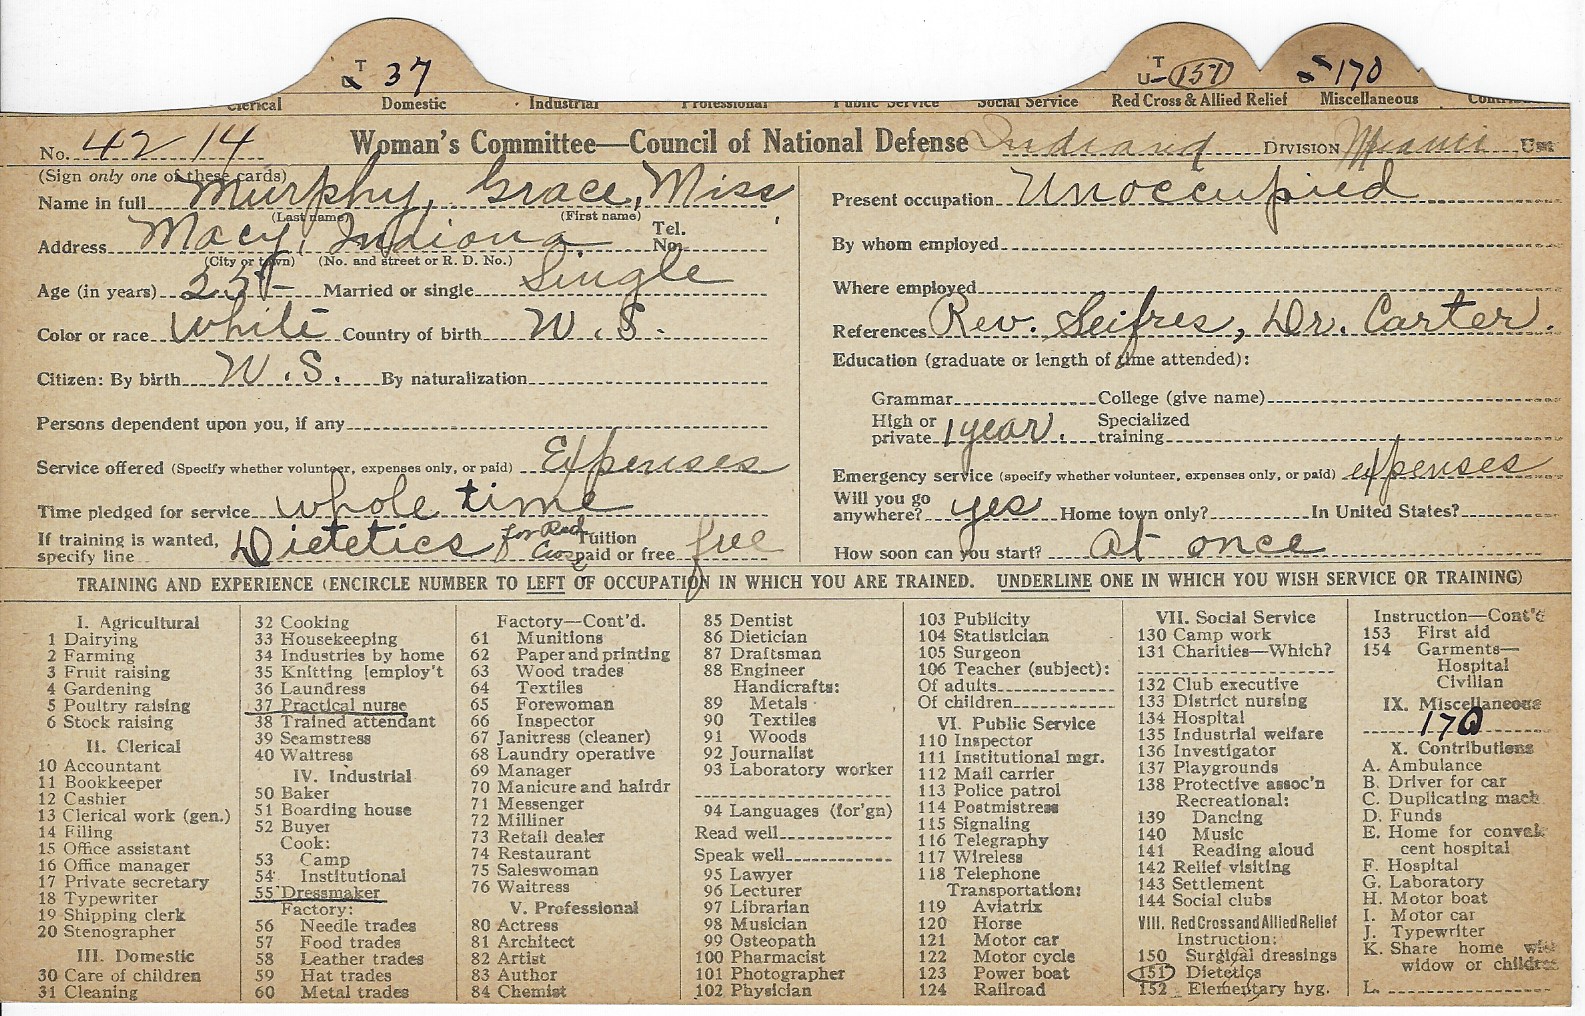 T 37
T U 151
170
Clerical Domestic Industrial Professional Public Service Social Service Red Cross & Allied Relief Miscellaneous
No. 42 14 Woman's Committee—Council of National Defense Indiana DIVISION Miami Unit
(Sign only one of these cards)
Name in full Murphy, Grace, Miss
(Last name) (First name)
Address Macy, Indiana Tel. No.
(City or town) (No. and street or R. D. No.)
Age (in years) Married or single Single
Color or race White Country of birth U.S.
Citizen: By birth U.S. By naturalization
Persons dependent upon you, if any
Service offered (Specify whether volunteer, expenses only, or paid) Expenses
Time pledged for service whole time
If training is wanted, specify line Dietetics for Red Cross Tuition paid or free free
Present occupation Unoccupied
By whom employed
Where employed
References Rev. Seifres, Dr. Carter.
Education (graduate or length of time attended):
Grammar College (give name)
High or private 1 year. Specialized training
Emergency service (specify whether volunteer, expenses only, or paid) expenses
Will you go anywhere? yes Home town only? In United States?
How soon can you start? At once
TRAINING AND EXPERIENCE (ENCIRCLE NUMBER TO LEFT OF OCCUPATION IN WHICH YOU ARE TRAINED. UNDERLINE ONE IN WHICH YOU WISH SERVICE OR TRAINING)
I. Agricultural
1 Dairying
2 Farming
3 Fruit raising
4 Gardening
5 Poultry raising
6 Stock raising
II. Clerical
10 Accountant
11 Bookkeeper
12 Cashier
13 Clerical work (gen.)
14 Filing
15 Office assistant
16 Office manager
17 Private secretary
18 Typewriter
19 Shipping clerk
20 Stenographer
III. Domestic
30 Care of children
31 Cleaning
32 Cooking
33 Housekeeping
34 Industries by home
35 Knitting [employ't
36 Laundress
37 Practical nurse
38 Trained attendant
39 Seamstress
40 Waitress
IV. Industrial
50 Baker
51 Boarding house
52 Buyer
Cook:
53 Camp
54 Institutional
55 Dressmaker
Factory:
56 Needle trades
57 Food trades
58 Leather trades
59 Hat trades
60 Metal trades
Factory—Cont'd.
61 Munitions
62 Paper and printing
63 Wood trades
64 Textiles
65 Forewoman
66 Inspector
67 Janitress (cleaner)
68 Laundry operative
69 Manager
70 Manicure and hairdr
71 Messenger
72 Milliner
73 Retail dealer
74 Restaurant
75 Saleswoman
76 Waitress
V. Professional
80 Actress
81 Architect
82 Artist
83 Author
84 Chemist
85 Dentist
86 Dietician
87 Draftsman
88 Engineer
Handicrafts:
89 Metals
90 Textiles
91 Woods
92 Journalist
93 Laboratory worker
94 Languages (for'gn)
Read well
Speak well
95 Lawyer
96 Lecturer
97 Librarian
98 Musician
99 Osteopath
100 Pharmacist
101 Photographer
102 Physician
103 Publicity
104 Statistician
105 Surgeon
106 Teacher (subject):
Of adults
Of children
VI. Public Service
110 Inspector
111 Institutional mgr.
112 Mail carrier
113 Police patrol
114 Postmistress
115 Signaling
116 Telegraphy
117 Wireless
118 Telephone
Transportation:
119 Aviatrix
120 Horse
121 Motor car
122 Motor cycle
123 Power boat
124 Railroad
VII. Social Service
130 Camp work
131 Charities—Which?
132 Club executive
133 District nursing
134 Hospital
135 Industrial welfare
136 Investigator
137 Playgrounds
138 Protective assoc'n
Recreational:
139 Dancing
140 Music
141 Reading aloud
142 Relief visiting
143 Settlement
144 Social clubs
VIII. Red Cross and Allied Relief
Instruction:
150 Surgical dressings
151 Dietetics
152 Elementary hyg.
Instruction—Cont'd
153 First aid
154 Garments—
Hospital
Civilian
IX. Miscellaneous
170
X. Contributions
A. Ambulance
B. Driver for car
C. Duplicating mach
D. Funds
E. Home for conval
cent hospital
F. Hospital
G. Laboratory
H. Motor boat
I. Motor car
J. Typewriter
K. Share home with
widow or children
L.